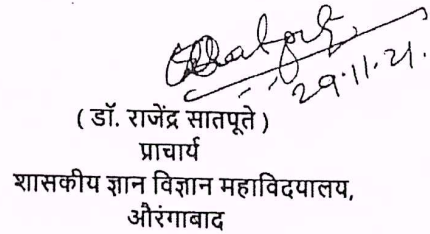 29.11.21.
( डॉ. राजेंद्र सातपूते )
प्राचार्य
शासकीय ज्ञान विज्ञान महाविदयालय,
औरंगाबाद